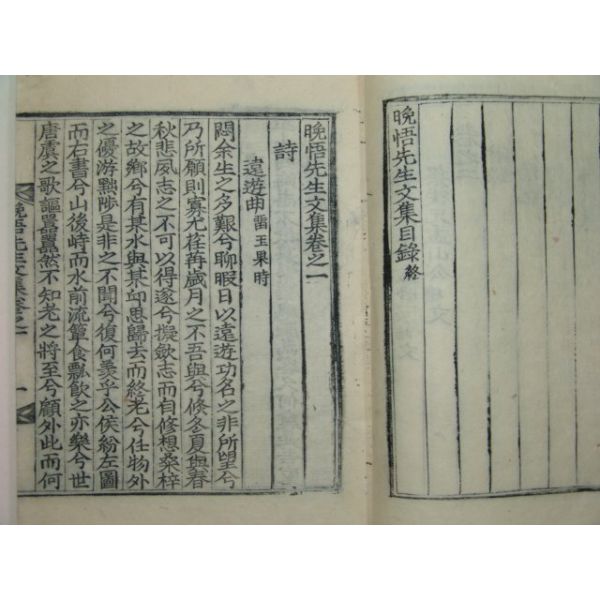 晩悟先生文集目錄 終
晩悟先生文集卷之一
詩
遠遊曲 雷王果時
悶余生之多艱兮聊暇日以遠遊功名之非所望兮
乃所願則寡尤荏苒歲月之不吾與兮倏冬夏與春
秋悲夙志之不可以得遂兮擬斂志而自修想桑梓
之故鄉兮有某水與某邱思歸去而終老兮任物外
之優游黜陟是非之不聞兮復何羡乎公侯紛左圖
而右書兮山後峙而水前流簞食瓢飮之亦樂兮世
唐虞之歌謳囂囂然不知老之將至兮顧外此而何
晩悟先生文集卷之一
一